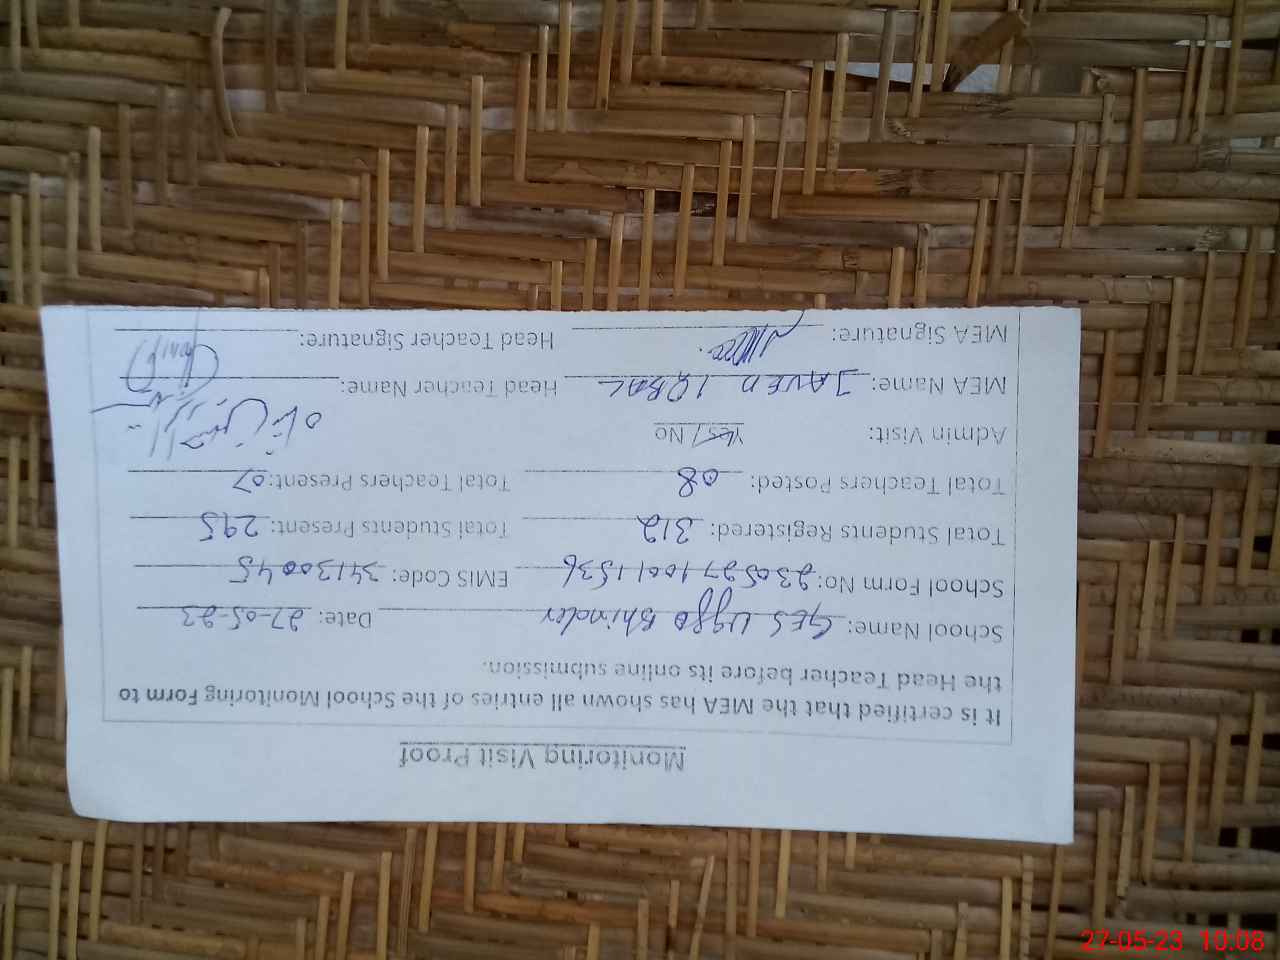 Monitoring Visit Proof
It is certified that the MEA has shown all entries of the School Monitoring Form to
the Head Teacher before its online submission.
School Name: GES Uggo Bhinder Date: 27-05-23
School Form No: 23052710011536 EMIS Code: 34130045
Total Students Registered: 312 Total Students Present: 295
Total Teachers Posted: 08 Total Teachers Present: 07
Admin Visit: Yes / No
MEA Name: JAVED IQBAL Head Teacher Name:
MEA Signature: Head Teacher Signature:
27-05-23 10:08